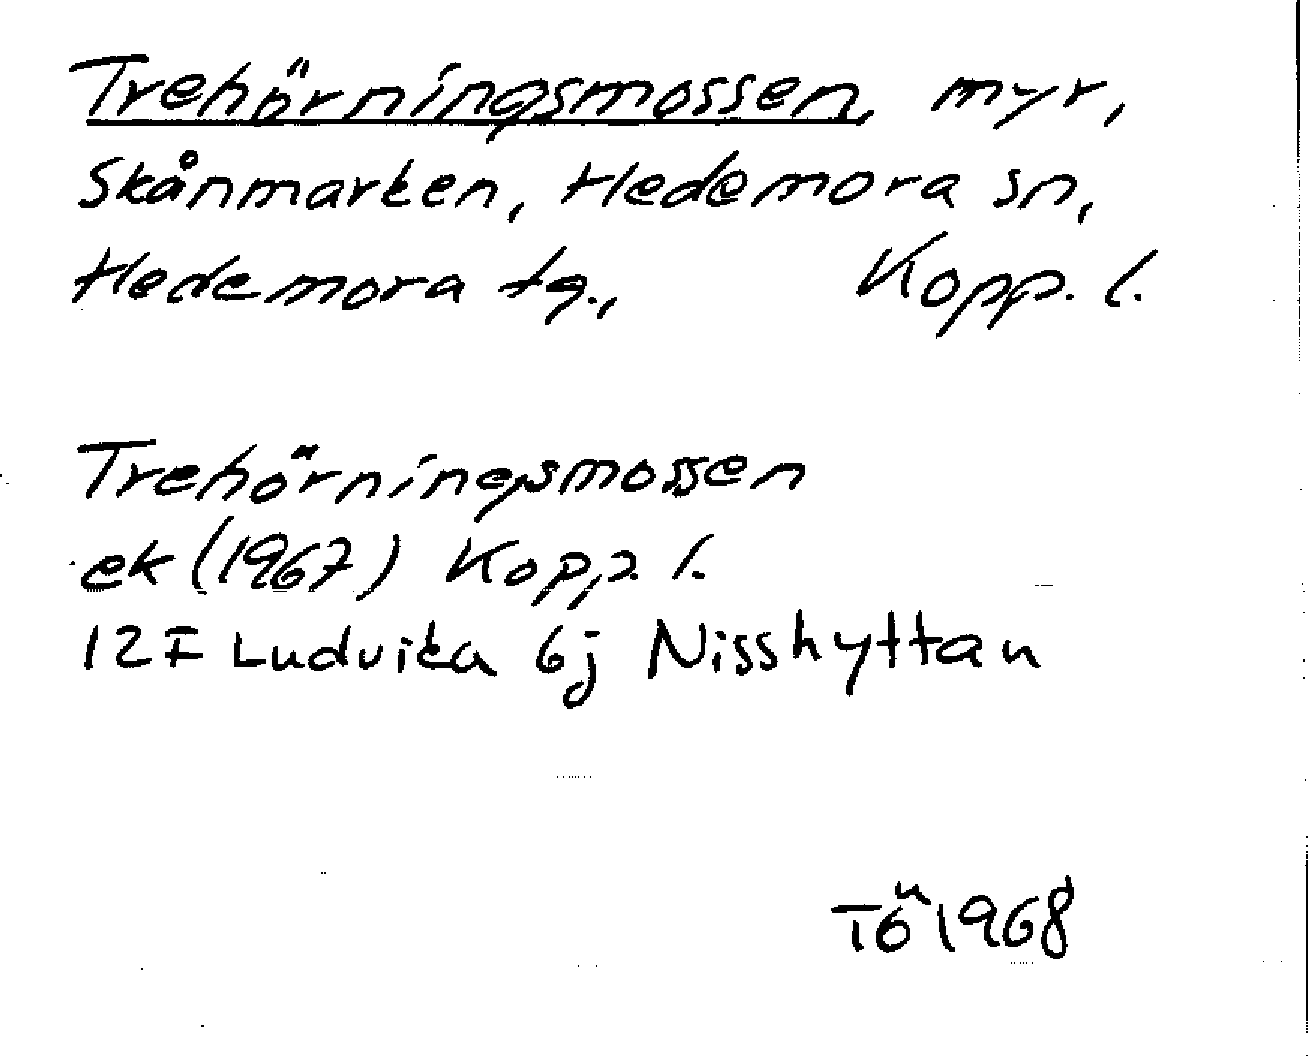 Trehörningsmossen, myr,
Skånmarken, Hedemora sn,
Hedemora tg., Kopp. l.
Trehörningsmossen
ek (1967) Kopp. l.
12F Ludvika 6j Nisshyttan
TÖ 1968